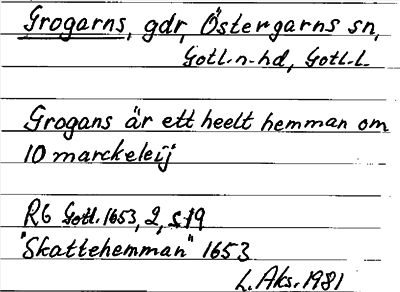 Grogarns, gdr, Östergarns sn,
Gotl.n.hd, Gotl.l.
Grogans är ett heelt hemman om
10 marckeleij
RG Gotl. 1653, 2, s 19
"Skattehemman" 1653
L. Aks. 1981